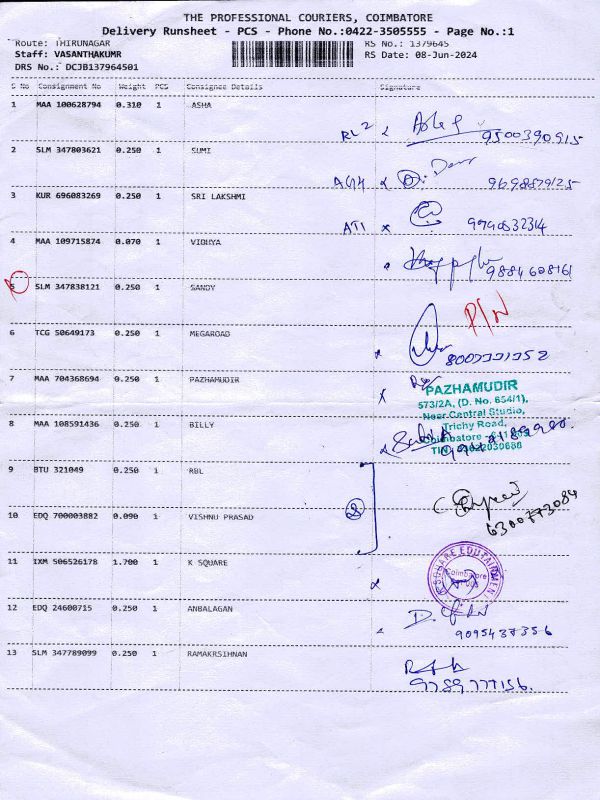 THE PROFESSIONAL COURIERS, COIMBATORE
Delivery Runsheet - PCS - Phone No.:0422-3505555 - Page No.:1
Route: THIRUNAGAR RS No.: 1379645
Staff: VASANTHAKUMR RS Date: 08-Jun-2024
DRS No.: DCJB137964501
S No Consignment No Weight PCS Consignee Details Signature
1 MAA 100628794 0.310 1 ASHA
9500390915
2 SLM 347803621 0.250 1 SUMI
3 KUR 696083269 0.250 1 SRI LAKSHMI
4 MAA 109715874 0.070 1 VIDHYA
9884608161
5 SLM 347838121 0.250 1 SANDY
P/N
6 TCG 50649173 0.250 1 MEGAROAD
7 MAA 704368694 0.250 1 PAZHAMUDIR
PAZHAMUDIR
573/2A, (D. No. 654/1),
Near Central Studio,
Trichy Road,
8 MAA 108591436 0.250 1 BILLY
9 BTU 321049 0.250 1 RBL
10 EDQ 700003882 0.090 1 VISHNU PRASAD
6300773084
11 IXM 506526178 1.700 1 K SQUARE
K SQUARE EDUTAINMENT
Coimbatore
12 EDQ 24600715 0.250 1 ANBALAGAN
9095437356
13 SLM 347789099 0.250 1 RAMAKRSIHNAN
9789777156.